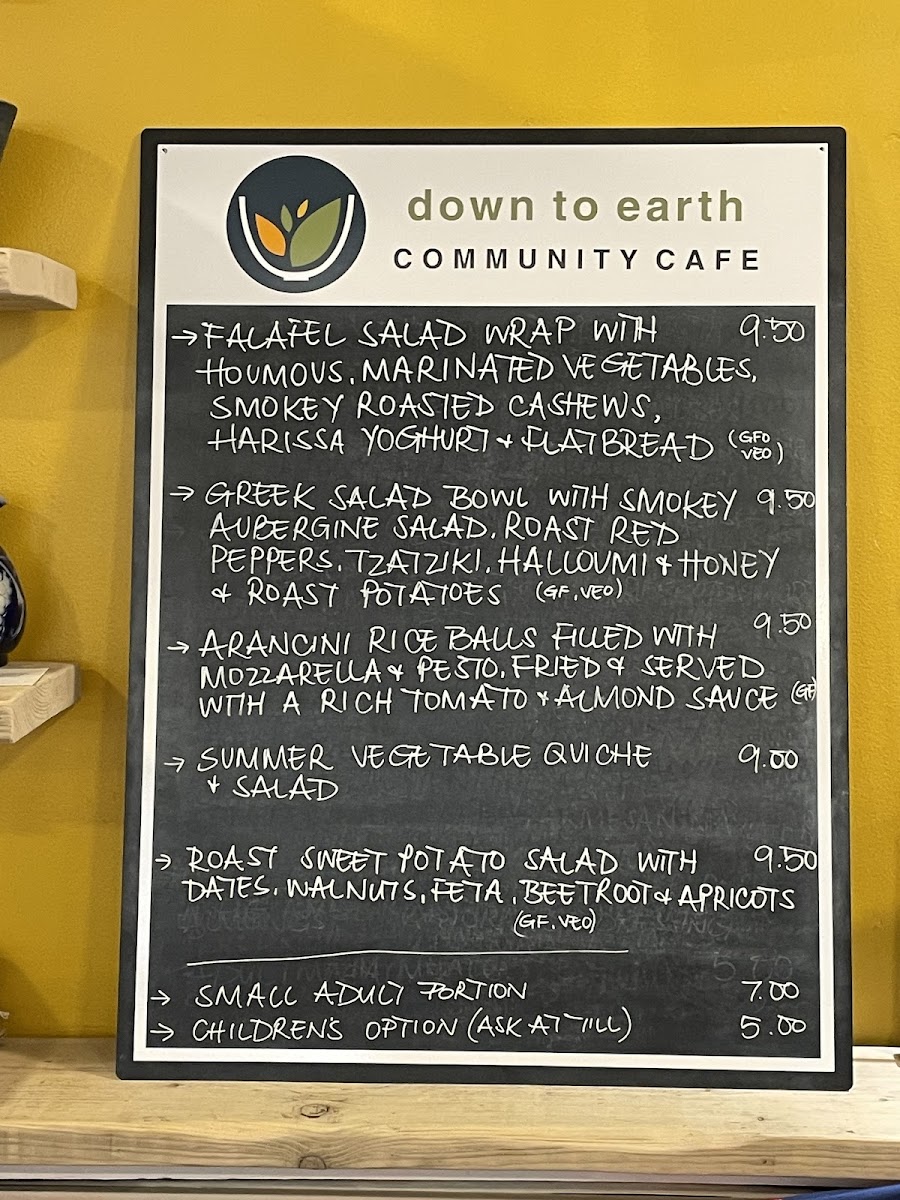 down to earth
COMMUNITY CAFE
→ FALAFEL SALAD WRAP WITH 9.50
HOUMOUS, MARINATED VEGETABLES,
SMOKEY ROASTED CASHEWS,
HARISSA YOGHURT & FLATBREAD (GFO VEO)
→ GREEK SALAD BOWL WITH SMOKEY 9.50
AUBERGINE SALAD, ROAST RED
PEPPERS, TZATZIKI, HALLOUMI & HONEY
& ROAST POTATOES (GF, VEO)
→ ARANCINI RICE BALLS FILLED WITH 9.50
MOZZARELLA & PESTO, FRIED & SERVED
WITH A RICH TOMATO & ALMOND SAUCE (GF)
→ SUMMER VEGETABLE QUICHE 9.00
& SALAD
→ ROAST SWEET POTATO SALAD WITH 9.50
DATES, WALNUTS, FETA, BEETROOT & APRICOTS
(GF, VEO)
→ SMALL ADULT PORTION 7.00
→ CHILDREN'S OPTION (ASK AT TILL) 5.00